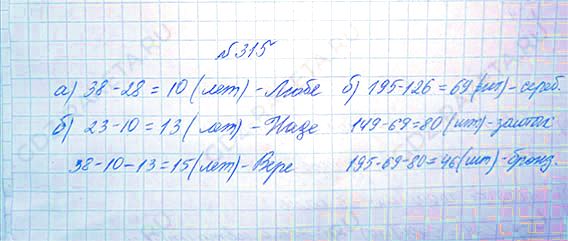 №315
а) 38-28=10 (лет) - Любе б) 195-126=69 (шт) - сереб.
б) 23-10=13 (лет) - Наде 149-69=80 (шт) - золот
38-10-13=15 (лет) - Вере 195-69-80=46 (шт) - бронз.